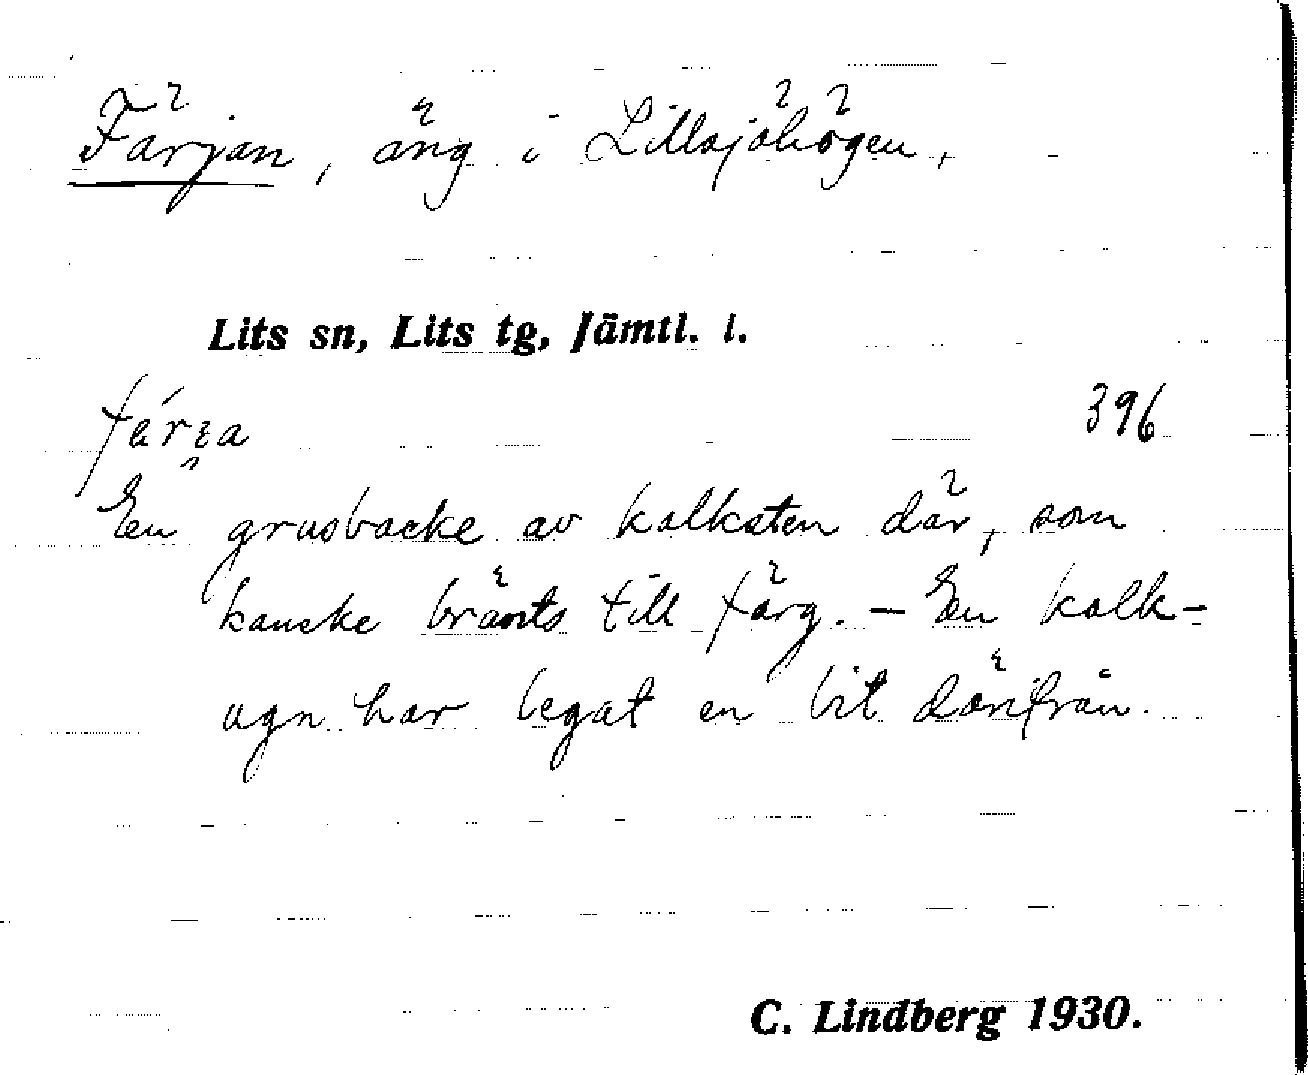 Färjan, äng i Lillsjöhögen,
Lits sn, Lits tg, Jämtl. l.
396
En grusbacke av kalksten där, som
kanske bränts till färg. – En kalk-
ugn har legat en bit därifrån.
C. Lindberg 1930.